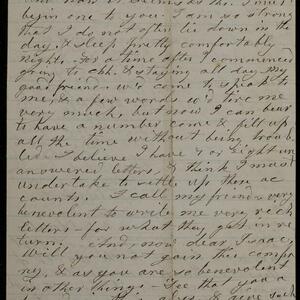 begin one to you. I am so strong
that I do not often lie down in the
day, & sleep pretty comfortably
nights. For a time after I commenced
going to chh. & staying all day my
good friends w'd come & speak to
me, & a few words w'd tire me
very much, but now I can bear
to have a number come & fill up
all the time without being troub
led. I believe I have 7 or eight un
answered letters, & think I must
undertake to settle up these ac
counts. I call my friends very
benevolent to write me very rich
letters for what they get in re
turn. And now dear Isaac,
Will you not join this compa
ny, & as you are so benevolent
in other things. See that you a